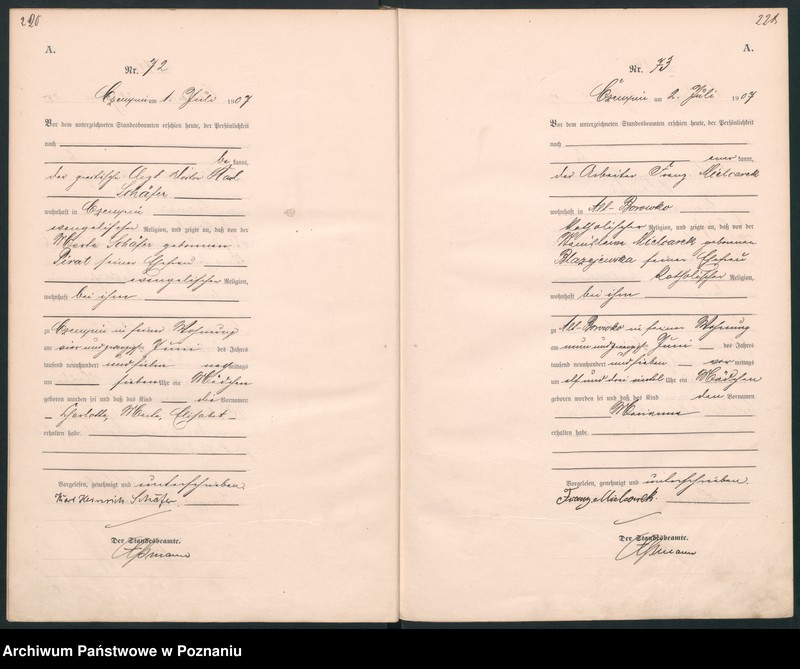 220
A.
Nr. 72
Czempin am 1. Juli 1907
Vor dem unterzeichneten Standesbeamten erschien heute, der Persönlichkeit
nach
be kannt,
der practische Arzt Doctor Karl
Schäfer
wohnhaft in Czempin
evangelischer Religion, und zeigte an, daß von der
Schäfer geborenen
seiner Ehefrau
evangelischer Religion,
wohnhaft bei ihm
zu Czempin in seiner Wohnung
am vier und zwanzigsten Juni des Jahres
tausend neunhundert und sieben nachmittags
um sieben Uhr ein Mädchen
geboren worden sei und daß das Kind die Vornamen
Charlotte, Elisabet
erhalten habe.
Vorgelesen, genehmigt und unterschrieben.
Karl Heinrich Schäfer
Der Standesbeamte.
221
A.
Nr. 73
Czempin am 2. Juli 1907
Vor dem unterzeichneten Standesbeamten erschien heute, der Persönlichkeit
nach
kannt,
der Arbeiter Franz Mielcarek
wohnhaft in Alt-Borowko
katholischer Religion, und zeigte an, daß von der
Stanislawa Mielcarek geborenen
Blazejewska seiner Ehefrau
katholischer Religion,
wohnhaft bei ihm
zu Alt-Borowko in seiner Wohnung
am neun und zwanzigsten Juni des Jahres
tausend neunhundert und sieben vormittags
um elf und drei viertel Uhr ein Mädchen
geboren worden sei und daß das Kind den Vornamen
Marianna
erhalten habe.
Vorgelesen, genehmigt und unterschrieben.
Franz Mielcarek.
Der Standesbeamte.
Archiwum Państwowe w Poznaniu